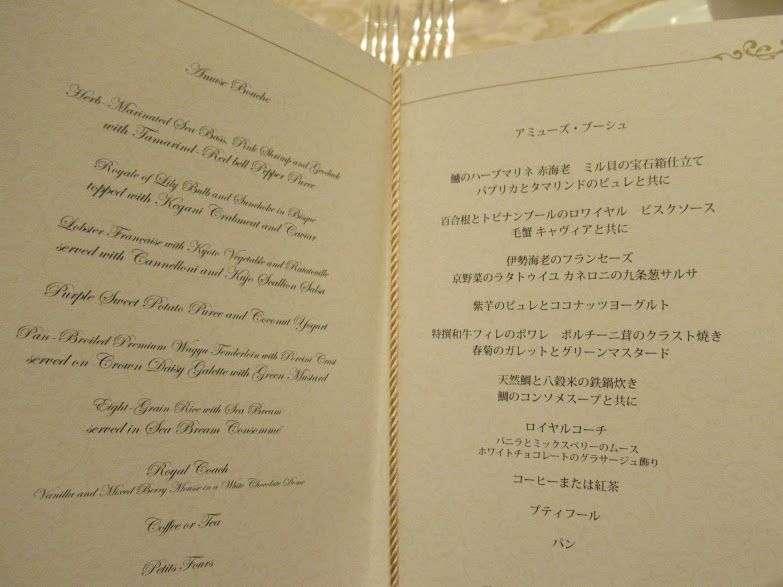 Amuse Bouche
Herb-Marinated Sea Bass, Pink Shrimp and Geoduck
with Tamarind-Red bell Pepper Puree
Royale of Lily Bulb and Sunchoke in Bisque
topped with Kegani Crabmeat and Caviar
Lobster Française with Kyoto Vegetable and Ratatouille
served with Cannelloni and Kujo Scallion Salsa
Purple Sweet Potato Puree and Coconut Yogurt
Pan-Broiled Premium Wagyu Tenderlein with Porcini Crust
served on Crown Daisy Galette with Green Mustard
Eight-Grain Rice with Sea Bream
served in Sea Bream Consommé
Royal Coach
Vanilla and Mixed Berry Mousse in a White Chocolate Dome
Coffee or Tea
Petits Fours
アミューズ・ブーシュ
鱸のハーブマリネ 赤海老 ミル貝の宝石箱仕立て
パプリカとタマリンドのピュレと共に
百合根とトピナンブールのロワイヤル ビスクソース
毛蟹 キャヴィアと共に
伊勢海老のフランセーズ
京野菜のラタトゥイユ カネロニの九条葱サルサ
紫芋のピュレとココナッツヨーグルト
特撰和牛フィレのポワレ ポルチーニ茸のクラスト焼き
春菊のガレットとグリーンマスタード
天然鯛と八穀米の鉄鍋炊き
鯛のコンソメスープと共に
ロイヤルコーチ
バニラとミックスベリーのムース
ホワイトチョコレートのグラサージュ飾り
コーヒーまたは紅茶
プティフール
パン